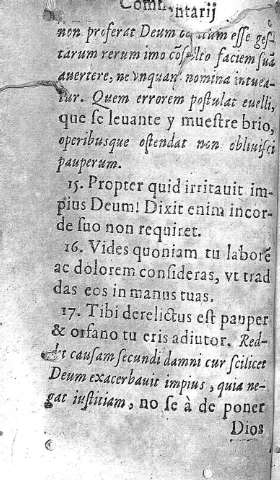 Commentarij
non proferat Deum esse ges-
tarum rerum imo cõsulto faciem sua
auertere, ne vnquam nomina intuea-
tur. Quem errorem postulat euelli,
que se leuante y muestre brio,
operibusque ostendat non obliuisci
pauperum.
15. Propter quid irritauit im-
pius Deum! Dixit enim incor-
de suo non requiret.
16. Vides quoniam tu laborē
ac dolorem consideras, vt trad
das eos in manus tuas.
17. Tibi derelictus est pauper
& orfano tu eris adiutor. Red-
dit causam secundi damni cur scilicet
Deum exacerbauit impius, quia ne-
gat iustitiam, no se à de poner
Dios